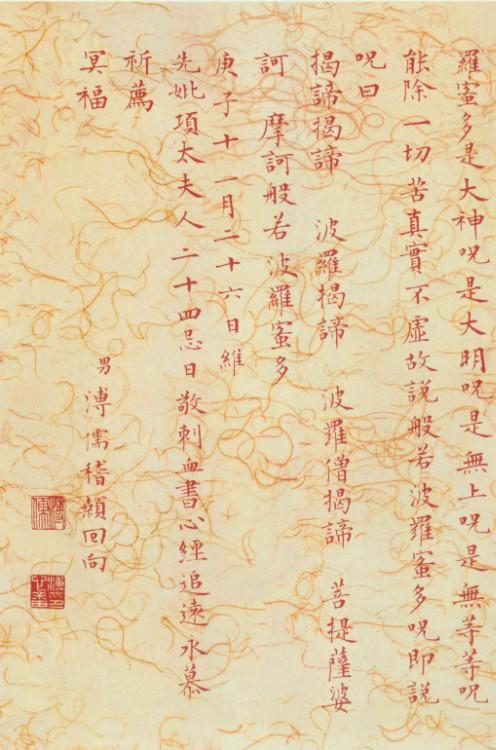 羅蜜多是大神呪是大明呪是無上呪是無等等呪
能除一切苦真實不虛故説般若波羅蜜多呪即説
呪曰
揭諦揭諦 波羅揭諦 波羅僧揭諦 菩提薩婆
訶 摩訶般若波羅蜜多
庚子十一月二十六日維
先妣項太夫人二十四忌日敬刺血書心經追遠永慕
祈薦
冥福
男 溥儒稽顙回向